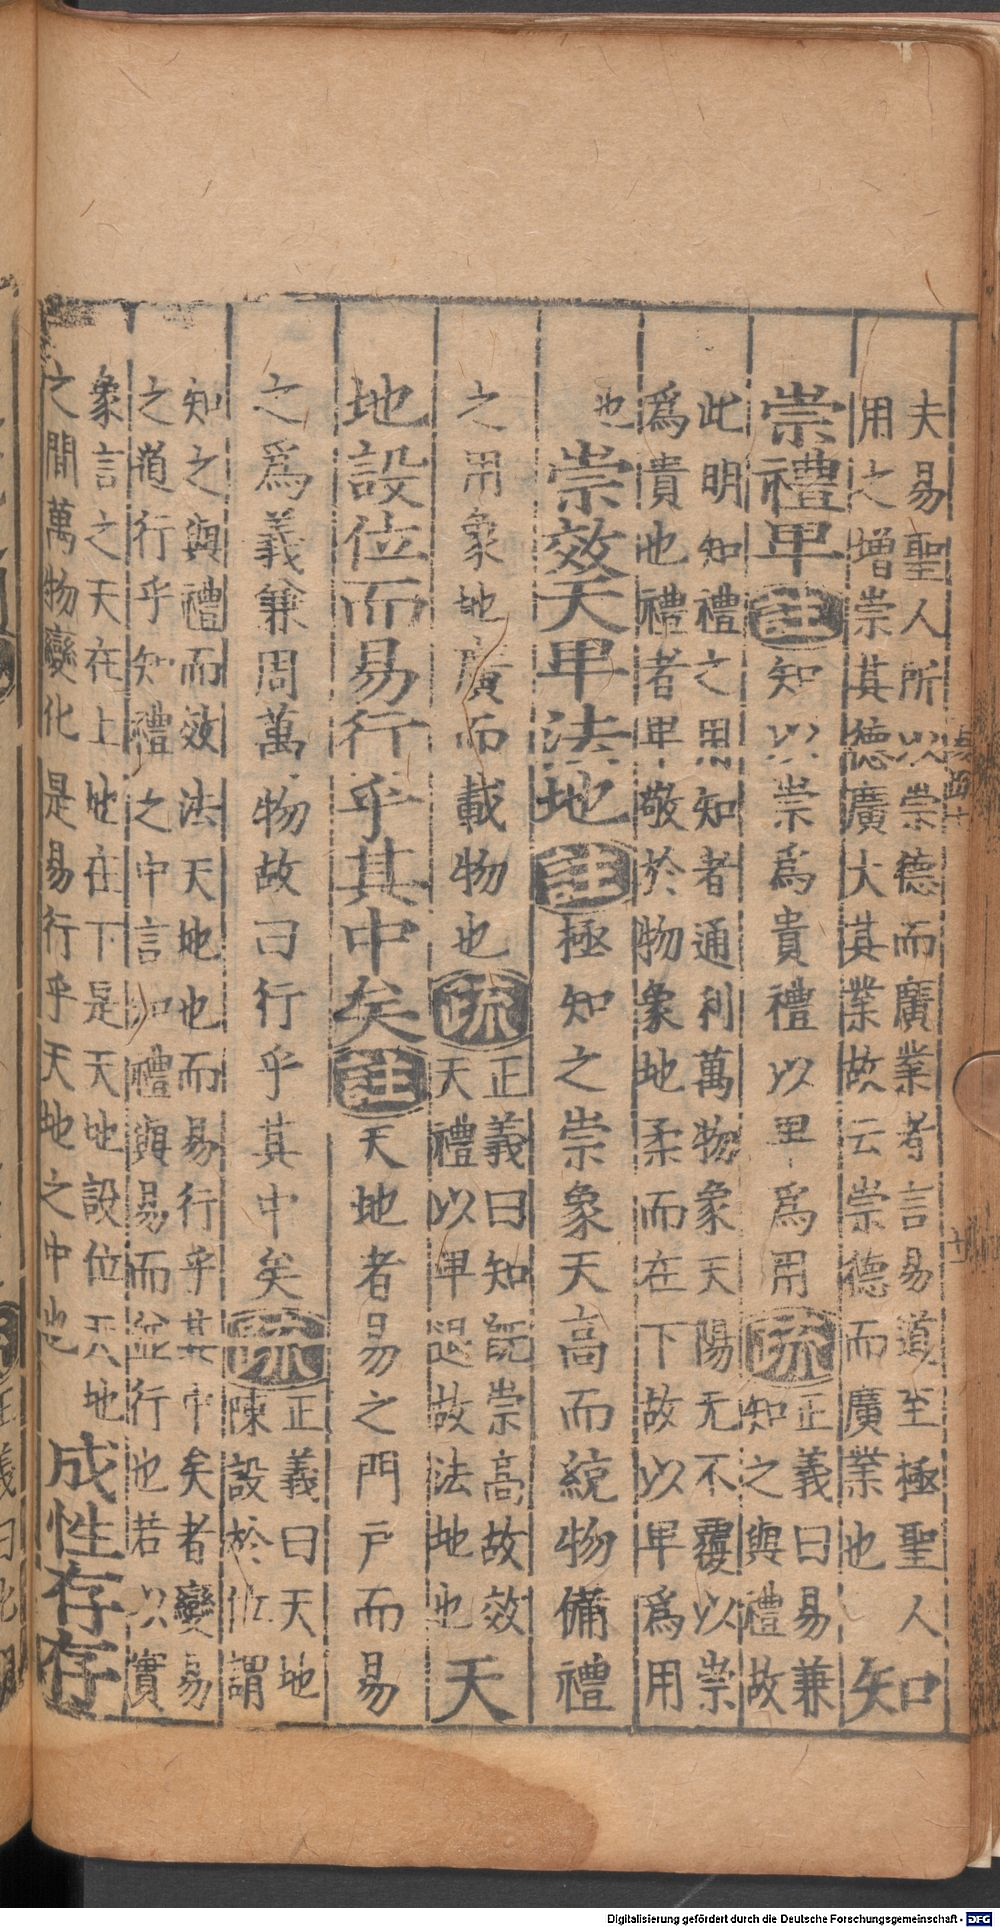 夫易聖人所以崇德而廣業者言易道至極聖人
用之增崇其德廣大其業故云崇德而廣業也
知
崇禮卑
註
知以崇爲貴禮以卑爲用
疏
正義曰易兼
知之與禮故
此明知禮之用知者通利萬物象天陽无不覆以崇
爲貴也禮者卑敬於物象地柔而在下故以卑爲用
也
崇效天卑法地
註
極知之崇象天高而統物備禮
之用象地廣而載物也
疏
正義曰知既崇高故效
天禮以卑退故法地也
天
地設位而易行乎其中矣
註
天地者易之門戶而易
之爲義兼周萬物故曰行乎其中矣
疏
正義曰天地
陳設於位謂
知之與禮而效法天地也而易行乎其中矣者變易
之道行乎知禮之中言知禮與易而並行也若以實
象言之天在上地在下是天地設位天地
之間萬物變化是易行乎天地之中也
成性存存
Digitalisierung gefördert durch die Deutsche Forschungsgemeinschaft - DFG